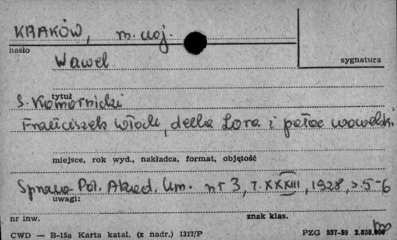 KRAKÓW, m. woj.
hasło
Wawel
sygnatura
tytuł
S. Komornicki
Franciszek Włoch, della Lora i pałac wawelski
miejsce, rok wyd., nakładca, format, objętość
Spraw. Pol. Akad. Um. nr 3, T. XXXIII, 1928, s. 5-6
uwagi:
nr inw.
znak klas.
CWD — B-15a Karta katal. (z nadr.) 1317/P
PZG 537-59 2.838.000